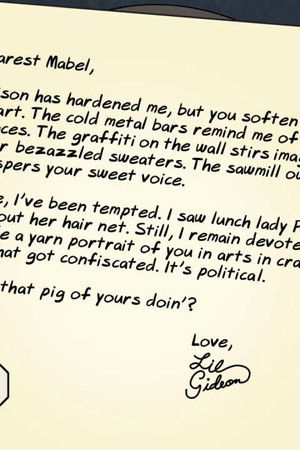 arest Mabel,
ison has hardened me, but you soften
art. The cold metal bars remind me of
ces. The graffiti on the wall stirs imag
r bezazzled sweaters. The sawmill ou
spers your sweet voice.
e, I've been tempted. I saw lunch lady P
out her hair net. Still, I remain devote
e a yarn portrait of you in arts in cra
hat got confiscated. It's political.
that pig of yours doin'?
Love,
Lil
Gideon